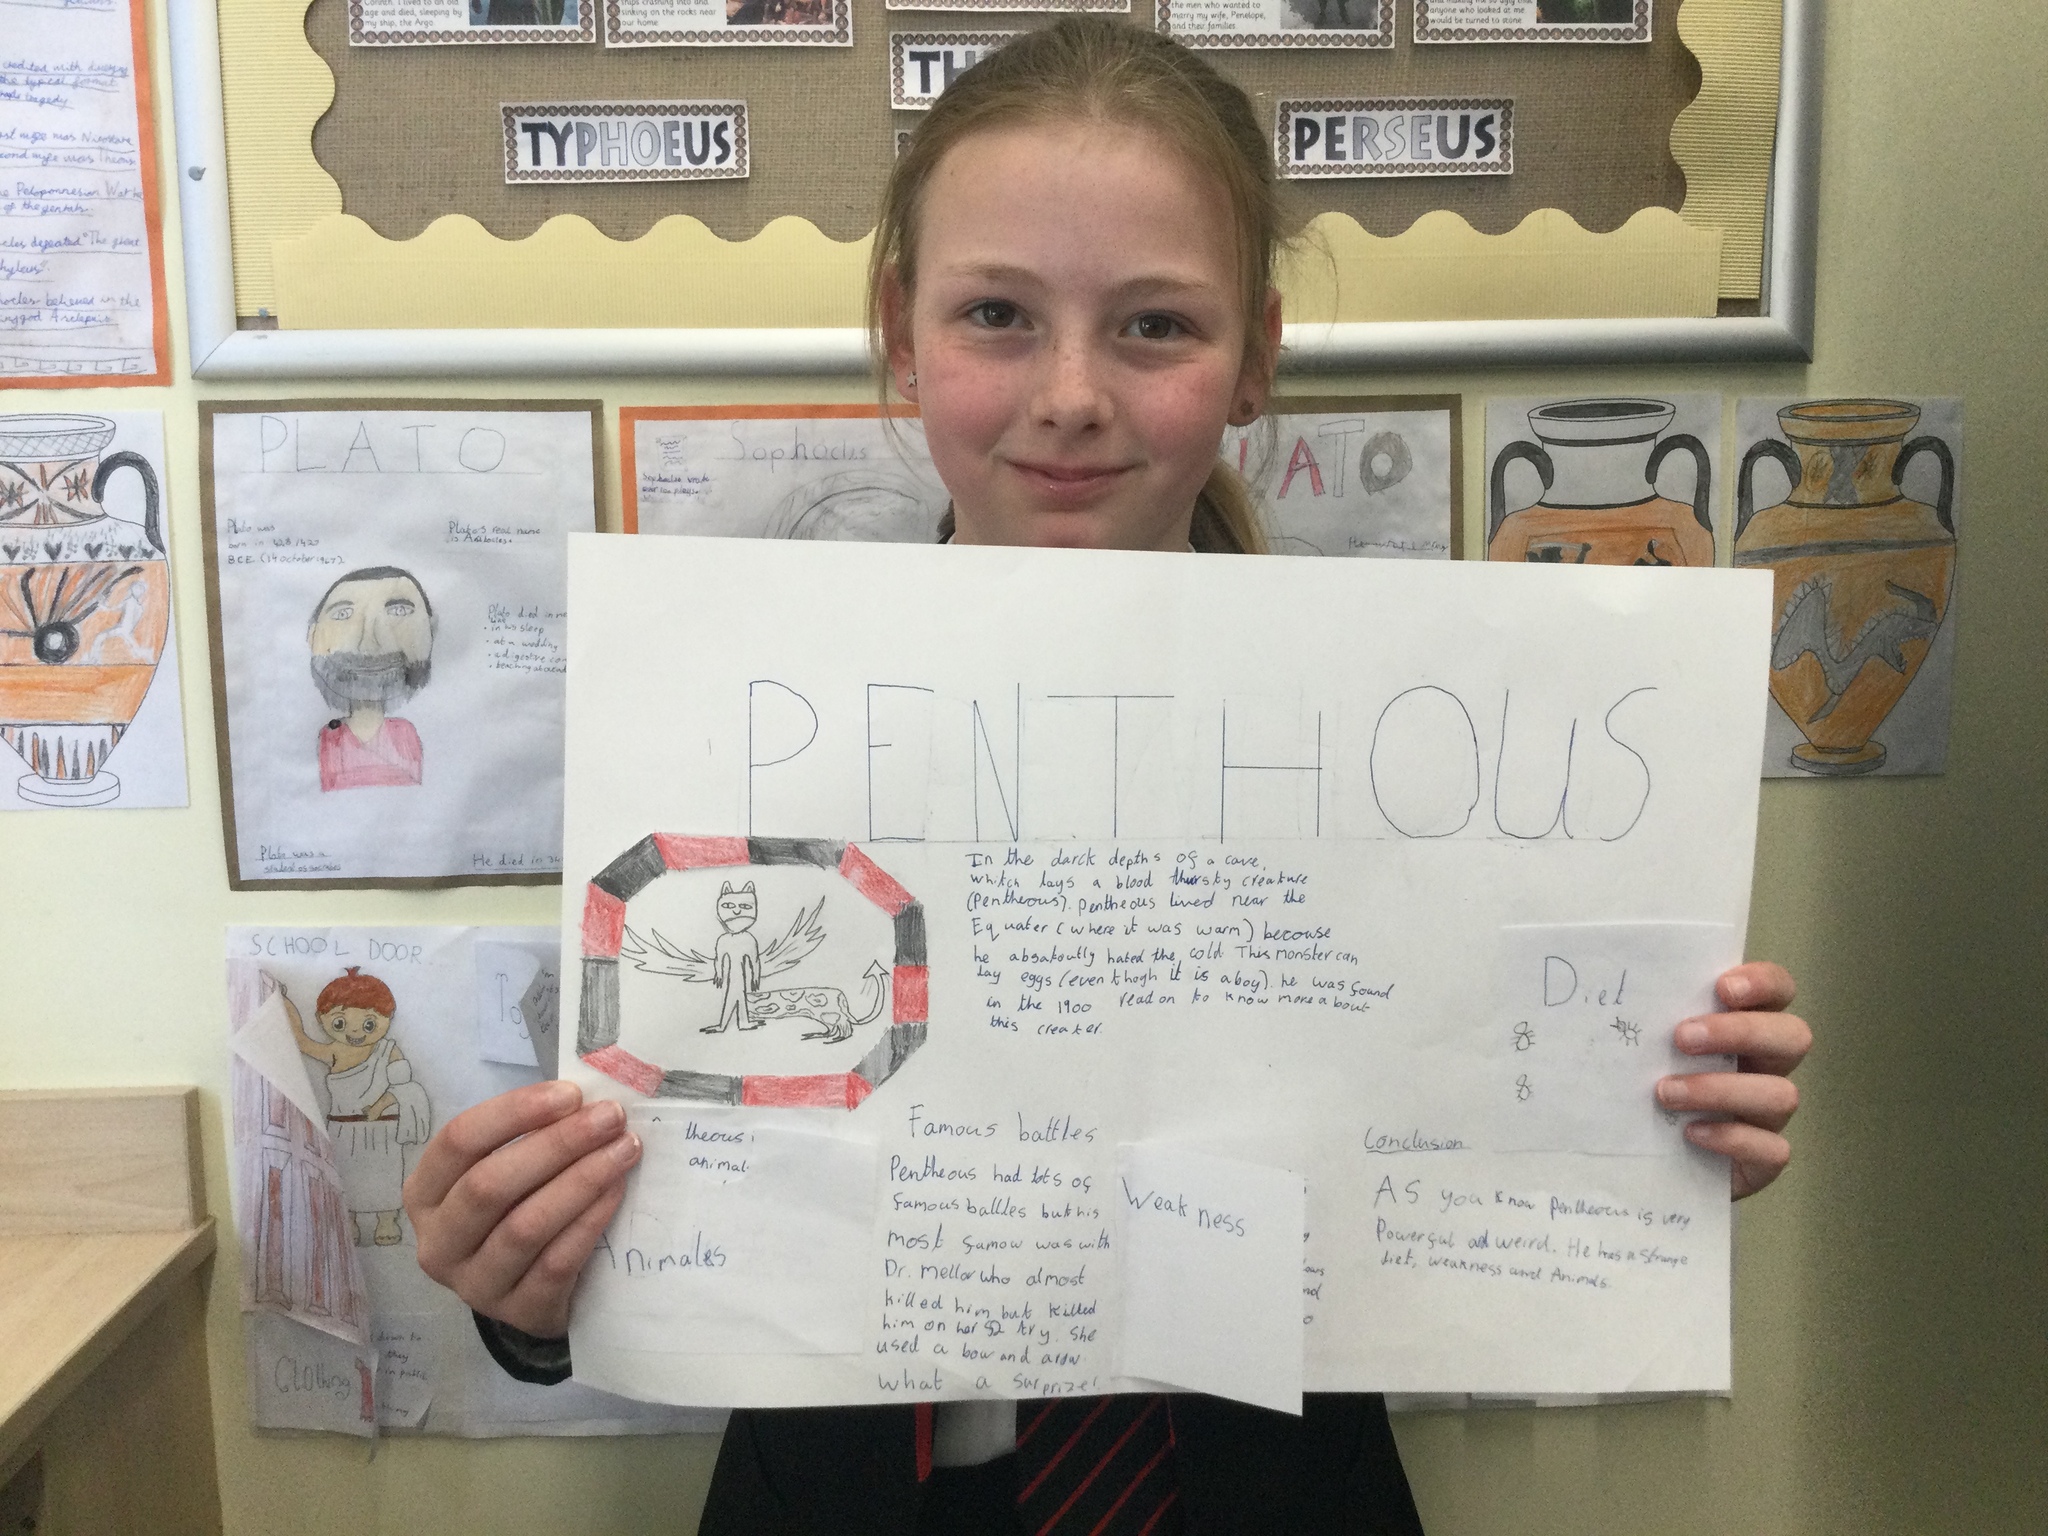 Corinth. I lived to an old
age and died, sleeping by
my ship, the Argo.
ships crashing into and
sinking on the rocks near
our home
the men who wanted to
marry my wife, Penelope,
and their families.
anyone who looked at me
would be turned to stone
TH
TYPHOEUS
PERSEUS
the typical format
tragedy
the Peloponnesian
of the
defeated "The giant
believed in the
god
PLATO
Plato was
born in 428/420
B.C.E.
Plato's real name
is
Plato died in
in his sleep
at a wedding
Plato was a
He died in 34
Sophoclis
Sophocles wrote
over 100 plays
LATO
SCHOOL DOOR
To
Clothing
down to
they
in public
PENTHOUS
In the darck depths of a cave,
whitch lays a blood thursty creature
(Pentheous). Pentheous lived near the
Equater (where it was warm) becouse
he absaloutly hated the cold. This monster can
lay eggs (even thogh it is a boy). he was found
in the 1900 read on to know more about
this creater.
Diet
theous
animal.
Animales
Famous battles
Pentheous had lots of
famous battles but his
most famow was with
Dr. Mellor who almost
killed him but killed
him on her 52 try. She
used a bow and arow.
what a surprize!
Weakness
Conclusion
As you know Pentheous is very
Powerful ad weird. He has a strange
diet, weakness and Animals.